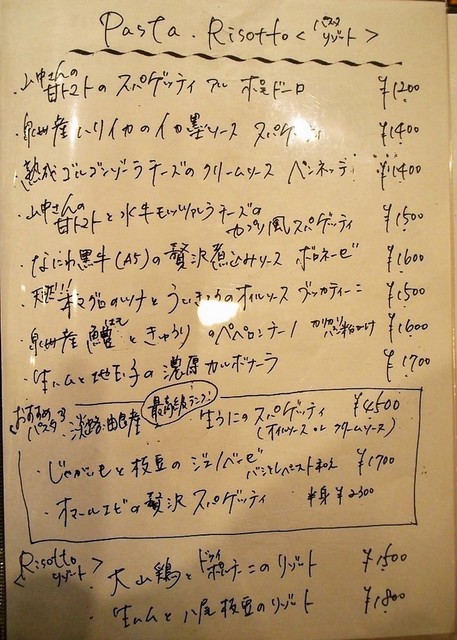 Pasta・Risotto<パスタ リゾット>
・山中さんの甘トマトのスパゲッティ アル ポモドーロ ¥1200
・泉州産ハリイカのイカ墨ソース スパゲッティ ¥1400
・熟成ゴルゴンゾーラチーズのクリームソース ペンネッテ ¥1400
・山中さんの甘トマトと水牛モッツァレラチーズのカプリ風スパゲッティ ¥1500
・なにわ黒牛(A5)の贅沢煮込みソース ボロネーゼ ¥1600
・天然!!本マグロのツナとういきょうのオイルソース ブカティーニ ¥1500
・泉州産 鱧(はも)ときゅうりのペペロンチーノ カリカリパン粉がけ ¥1600
・生ハムと地玉子の濃厚カルボナーラ ¥1700
おすすめパスタ3
・淡路・由良産 最高級ランク! 生うにのスパゲッティ ¥4500
(オイルソース or クリームソース)
・じゃがいもと枝豆のジェノベーゼ バジルペースト和え ¥1700
・オマールエビの贅沢スパゲッティ 半身¥2300
<Risotto リゾット>
・大山鶏とドライポルチーニのリゾット ¥1500
・生ハムと八尾枝豆のリゾット ¥1800